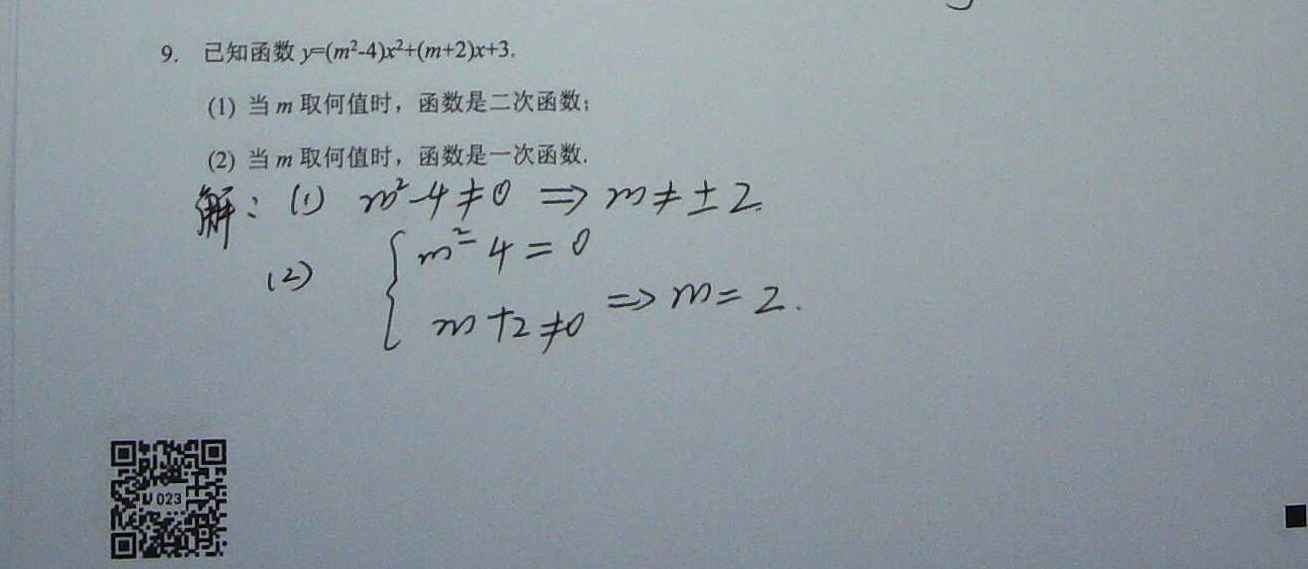 9. 已知函数 y=(m²-4)x²+(m+2)x+3.
(1) 当 m 取何值时，函数是二次函数；
(2) 当 m 取何值时，函数是一次函数.
解：(1) m²-4≠0 ⇒ m≠±2.
(2) { m²-4=0
m+2≠0 ⇒ m=2.
023